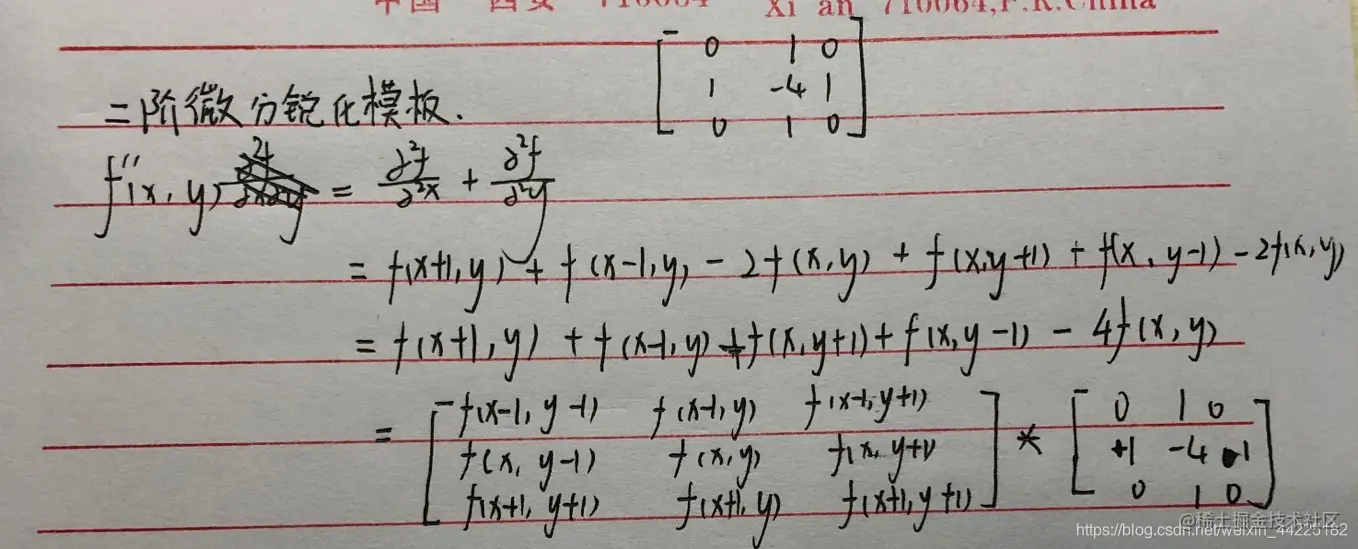 中国 西安 710064 Xi'an 710064,P.R.China
[0 1 0
二阶微分锐化模板. 1 -4 1
0 1 0]
f''(x,y) = ∂²f/∂²x + ∂²f/∂²y
= f(x+1,y) + f(x-1,y) - 2f(x,y) + f(x,y+1) + f(x,y-1) - 2f(x,y)
= f(x+1,y) + f(x-1,y) + f(x,y+1) + f(x,y-1) - 4f(x,y)
[f(x-1,y-1) f(x-1,y) f(x-1,y+1) [0 1 0
= f(x,y-1) f(x,y) f(x,y+1) * +1 -4 1
f(x+1,y+1) f(x+1,y) f(x+1,y+1)] 0 1 0]
@稀土掘金技术社区
https://blog.csdn.net/weixin_44225182